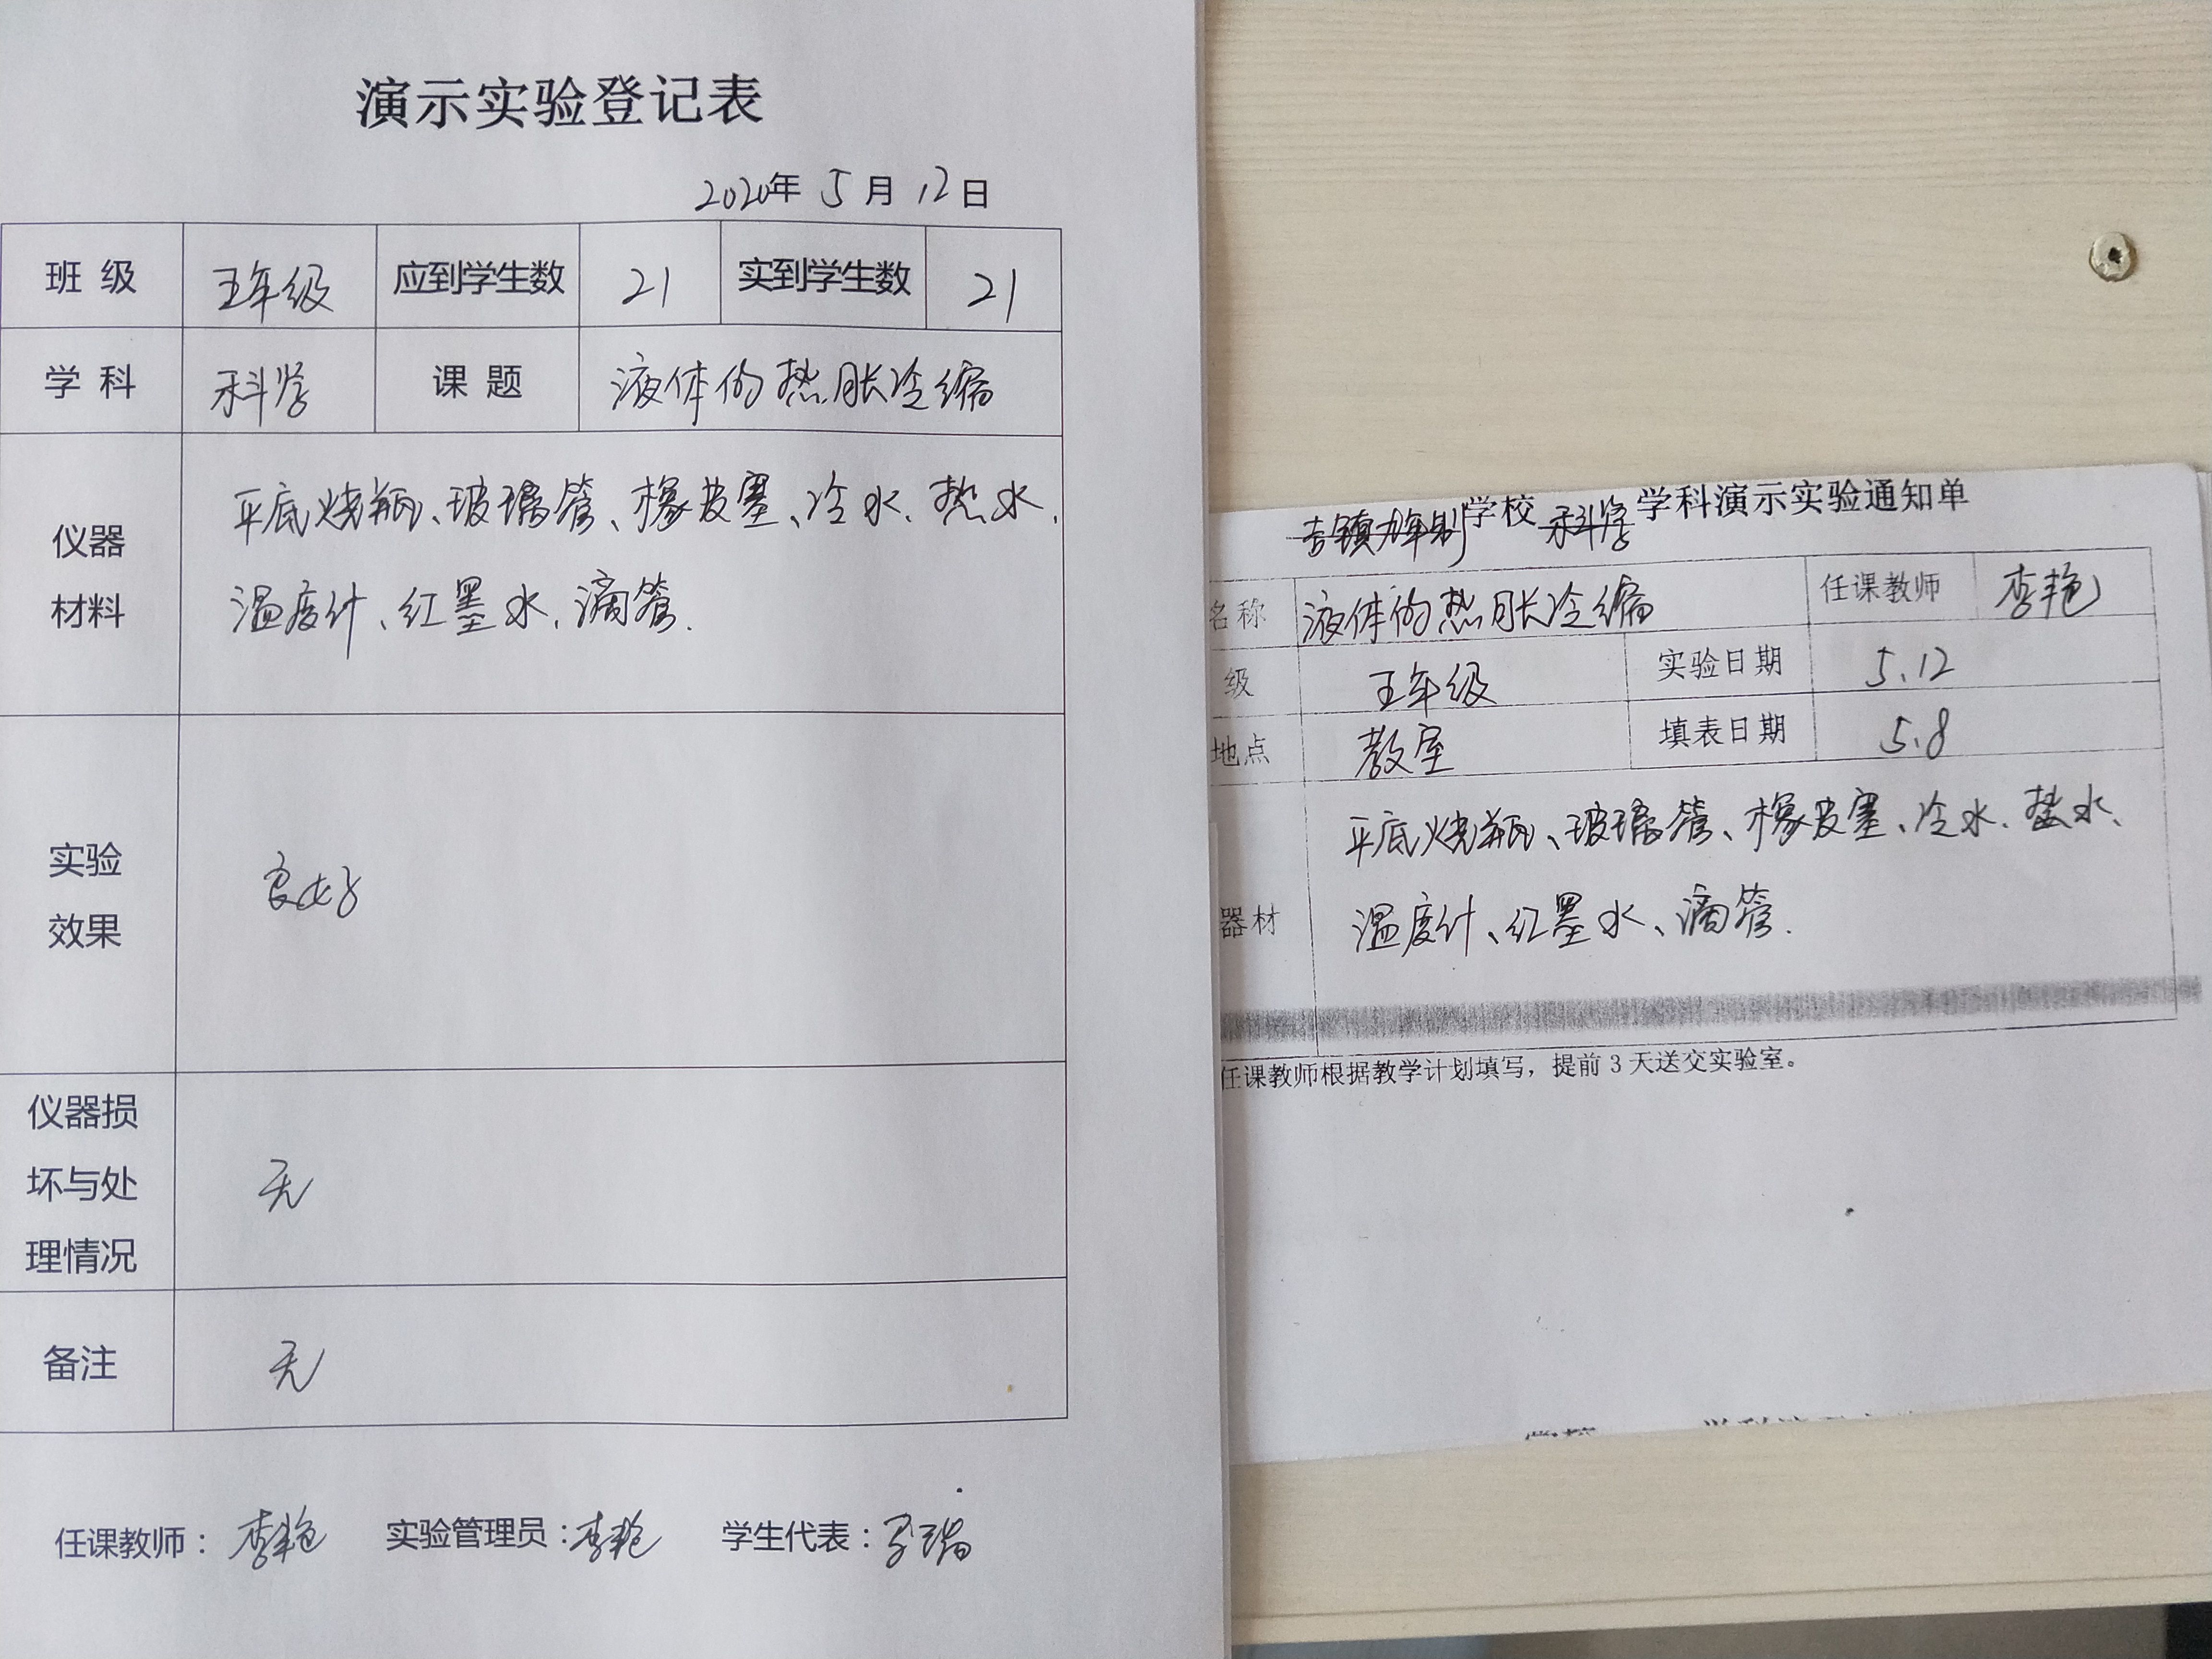 演示实验登记表
2020年 5月 12日
班级 五年级 应到学生数 21 实到学生数 21
学科 科学 课题 液体的热胀冷缩
仪器
材料
平底烧瓶、玻璃管、橡皮塞、冷水、热水、
温度计、红墨水、滴管.
实验
效果
良好
仪器损
坏与处
理情况
无
备注 无
任课教师：李艳 实验管理员：李艳 学生代表：
吉镇九年制学校 科学 学科演示实验通知单
名称 液体的热胀冷缩 任课教师 李艳
级 五年级 实验日期 5.12
地点 教室 填表日期 5.8
器材
平底烧瓶、玻璃管、橡皮塞、冷水、热水、
温度计、红墨水、滴管.
任课教师根据教学计划填写，提前 3 天送交实验室。